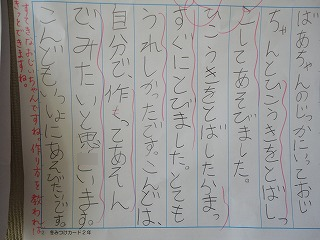 ばあちゃんのじっかにいっておじい
ちゃんとひこうきをとばしっ
こしてあそびました。
ひこうきをとばしたらまっ
すぐにとびました。とても
うれしかったです。こんどは、
自分で、作ってあそん
でみたいと思います。
こんどもいっしょにあそびたいです。
すてきなおじいちゃんですね。作り方を教われば、
きっとできますね。
きみつけカード2年